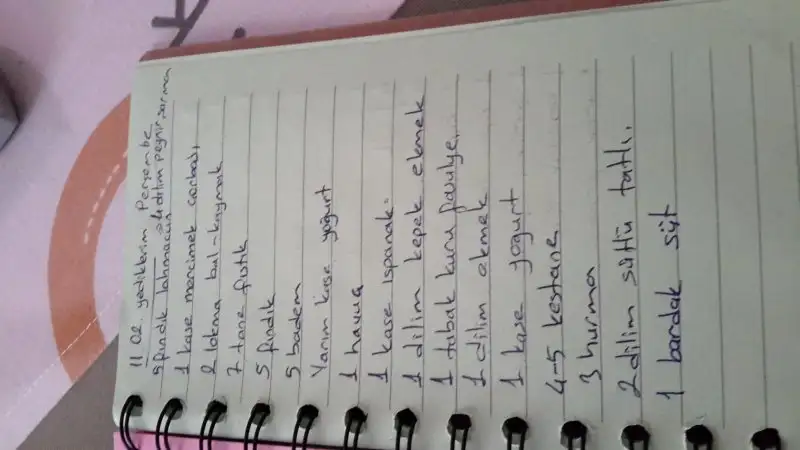 11 02. yediklerim Perşembe
5 fındık lahmacun → 1 dilim peynir
1 kase mercimek çorbası
2 lokma bal-kaymak
7 tane fıstık
5 fındık
5 badem
Yarım kase yoğurt
1 havuç
1 kase ıspanak
1 dilim kepek ekmek
1 tabak kuru fasulye
1 dilim ekmek
1 kase yoğurt
4-5 kestane
3 hurma
2 dilim sütlü tatlı.
1 bardak süt